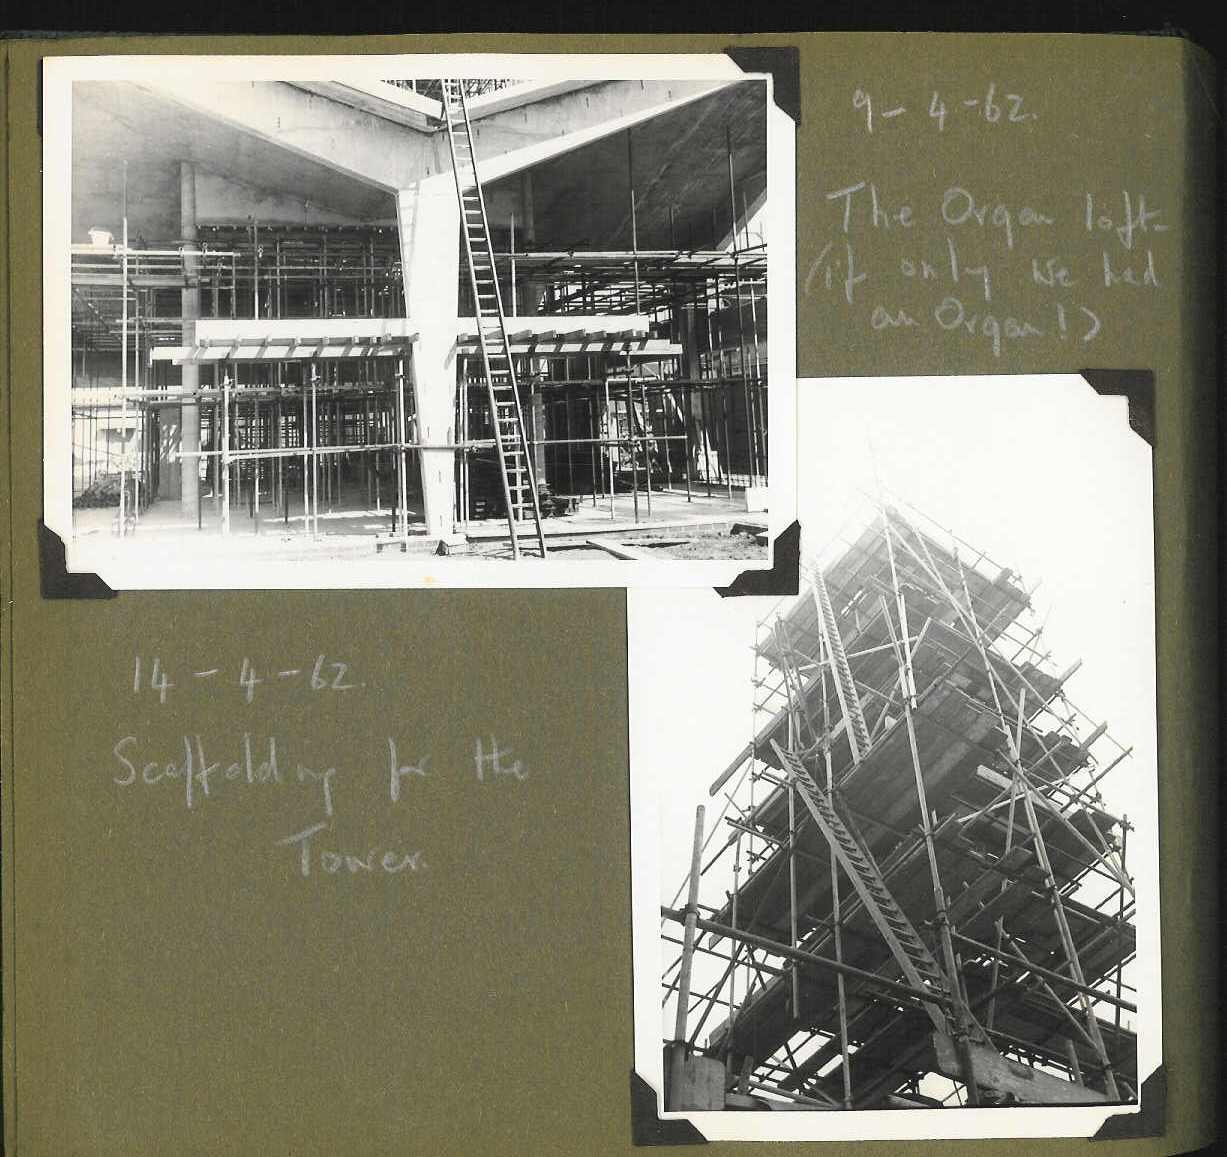 9-4-62.
The Organ loft-
(if only we had
an Organ!)
14-4-62.
Scaffolding for the
Tower.